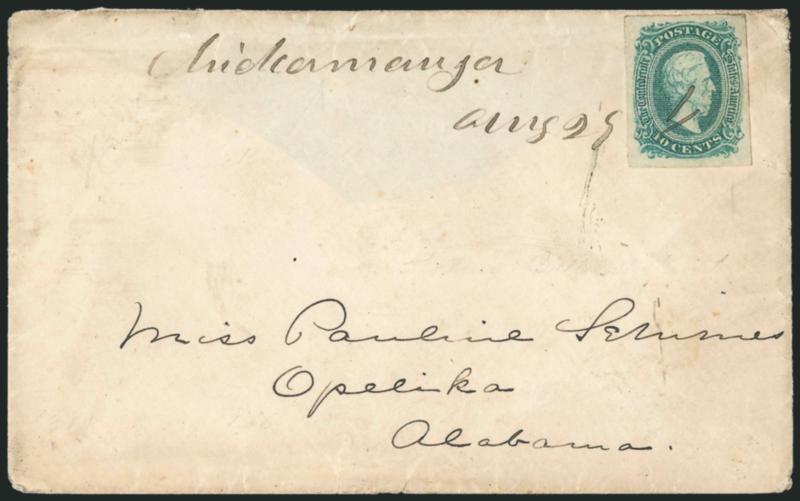 Chickamauga
Aug 29
POSTAGE
The Confederate States of America
10 CENTS
Miss Pauline Semmes
Opelika
Alabama.